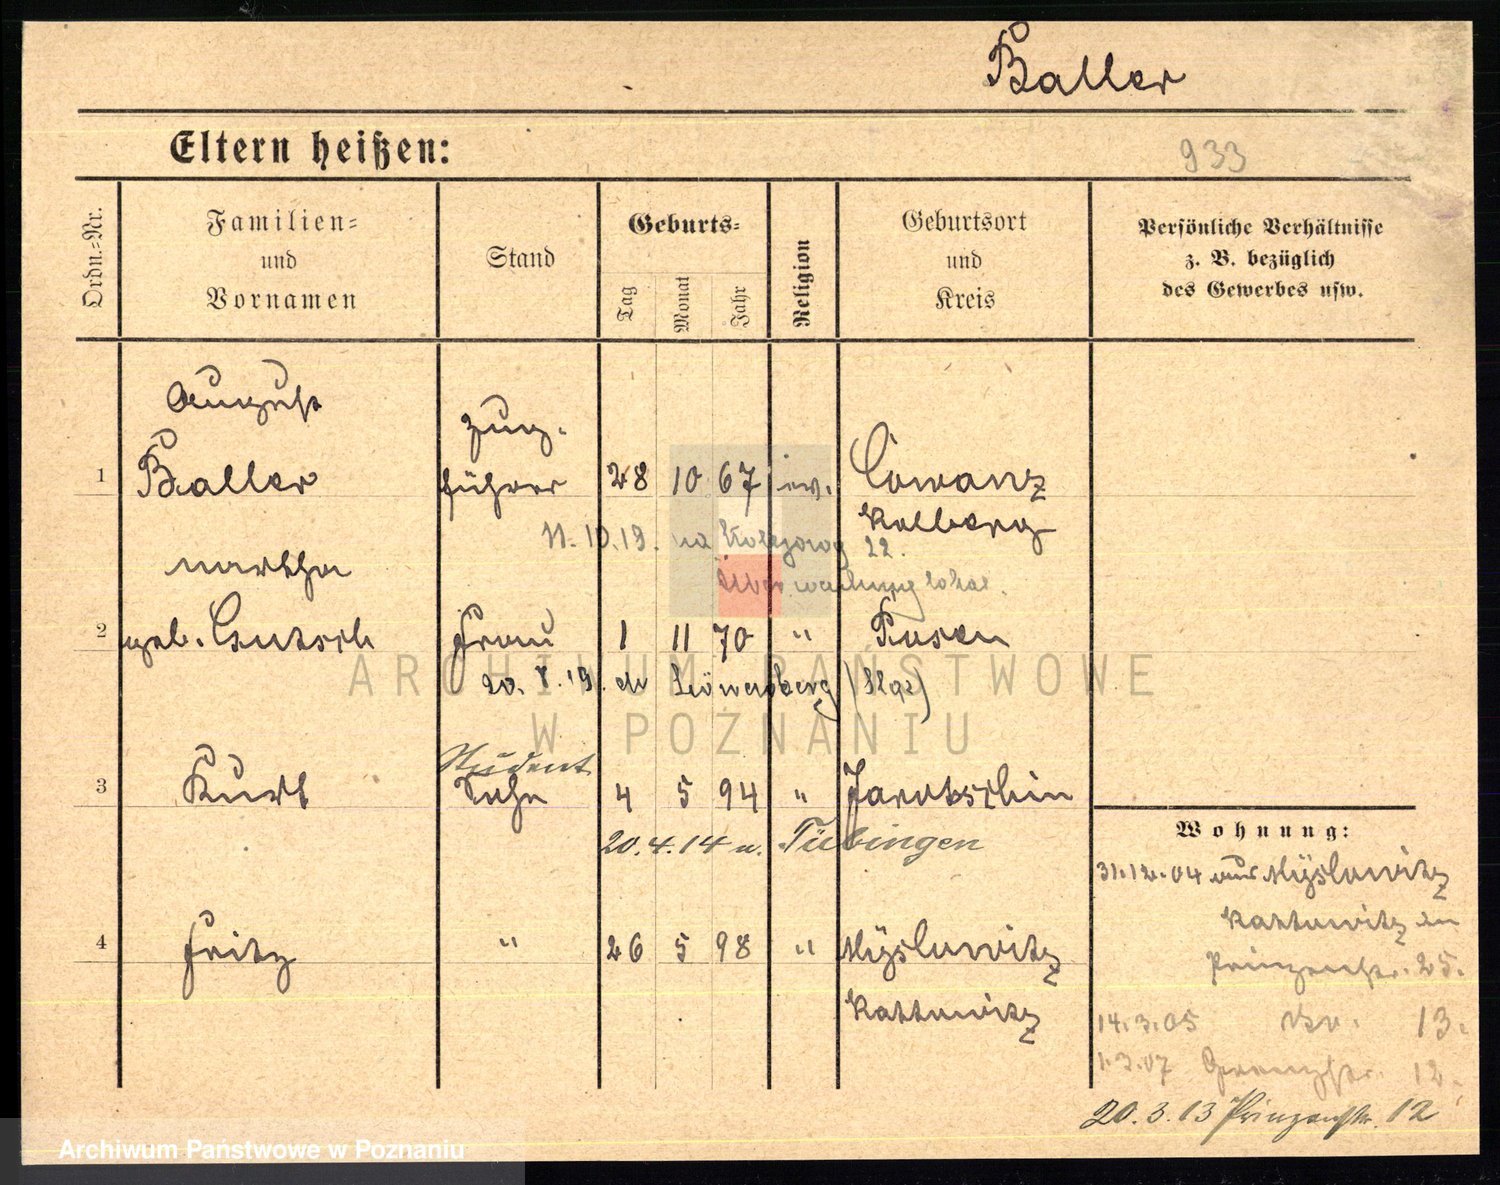 Baller
Eltern heißen:
933
Ordn.-Nr.
Familien-
und
Vornamen
Stand
Geburts-
Tag
Monat
Jahr
Religion
Geburtsort
und
Kreis
Persönliche Verhältnisse
z. B. bezüglich
des Gewerbes usw.
August
Zug-
1 Baller führer 28 10 67 ev. Cowanz
Kolberg
11.10.19. 22.
Martha
2 geb. Gutsch Frau 1 11 70 " Posen
20. 8. 19. Löwenberg
Student
3 Kurt Sohn 4 5 94 " Jarotschin
20.4.14 n. Tübingen
4 Fritz " 26 5 98 " Myslowitz
Kattowitz
Wohnung:
31.12.04 aus Myslowitz
Kattowitz in
Prinzenstr. 25.
14.3.05 do. 13.
1.3.07 Grenzstr. 12.
20.3.13 Prinzenstr. 12
ARCHIWUM PAŃSTWOWE
W POZNANIU
Archiwum Państwowe w Poznaniu